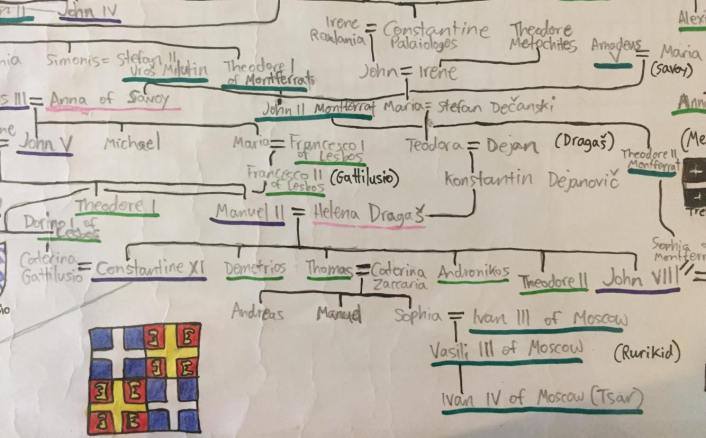 II John IV
Irene = Constantine
Raoulania Palaiologos
Theodore
Metochites
Amadeus
V
= Maria
(Savoy)
Alexi
nia Simonis = Stefan II
Uros Milutin
Theodore I
of Montferrats
John = Irene
s III = Anna of Savoy
John II Montferrat
Maria = Stefan Dečanski
Ann
ne
= John V
Michael
Maria = Francesco I
of Lesbos
Teodora = Dejan (Dragaš)
Theodore II
Montferrat
(Me
Francesco II
of Lesbos
(Gattilusio)
Konstantin Dejanović
Tre
Theodore I
Manuel II = Helena Dragaš
Dorino I of
Lesbos
Sophia of
Montferr
Caterina
Gattilusio
= Constantine XI
Demetrios
Thomas = Caterina
Zaccaria
Andronikos
Theodore II
John VIII
Andreas
Manuel
Sophia = Ivan III of Moscow
Vasili III of Moscow (Rurikid)
Ivan IV of Moscow (Tsar)